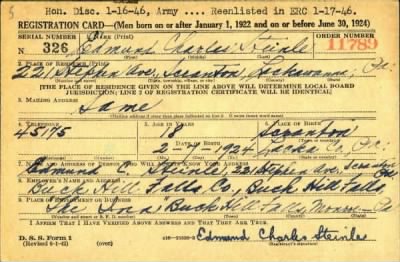 Hon. Disc. 1-16-46, Army .... Reenlisted in ERC 1-17-46.
REGISTRATION CARD—(Men born on or after January 1, 1922 and on or before June 30, 1924)
SERIAL NUMBER
ORDER NUMBER
N 326
Edmund Charles Steinle
11789
(First) (Middle) (Last)
2. PLACE OF RESIDENCE
221 Stephen Ave, Scranton, Lackawanna, Pa.
[THE PLACE OF RESIDENCE GIVEN ON THE LINE ABOVE WILL DETERMINE LOCAL BOARD
JURISDICTION; LINE 2 OF REGISTRATION CERTIFICATE WILL BE IDENTICAL]
3. MAILING ADDRESS
Same
4. TELEPHONE
5. AGE IN YEARS
6. PLACE OF BIRTH
45175
18
Scranton
DATE OF BIRTH
2-7-1924
Lacka Co, Pa.
7. NAME AND ADDRESS OF PERSON WHO WILL ALWAYS KNOW YOUR ADDRESS
Edmund C. Steinle, 221 Stephen Ave, Scranton Pa.
8. EMPLOYER'S NAME AND ADDRESS
Buck Hill Falls Co, Buck Hill Falls
9. PLACE OF EMPLOYMENT OR BUSINESS
The Inn Buck Hill Falls Monroe Pa
I AFFIRM THAT I HAVE VERIFIED ABOVE ANSWERS AND THAT THEY ARE TRUE.
D. S. S. Form 1
(Revised 6-1-42)
Edmund Charles Steinle